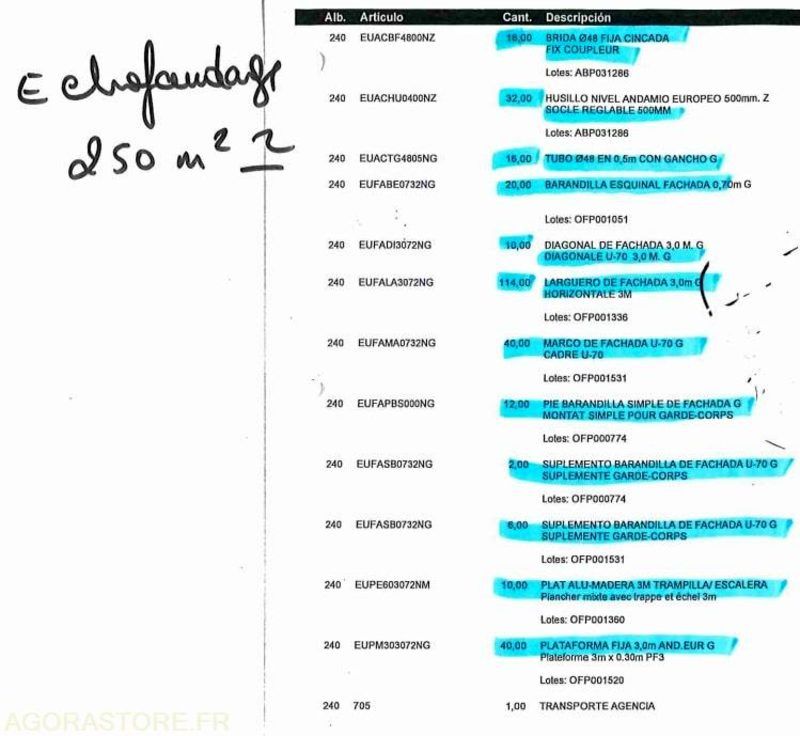 Echafaudage
250 m² 2
Alb. Articulo Cant. Descripción
240 EUACBF4800NZ 16,00 BRIDA Ø48 FIJA CINCADA
FIX COUPLEUR
Lotes: ABP031286
240 EUACHU0400NZ 32,00 HUSILLO NIVEL ANDAMIO EUROPEO 500mm. Z
SOCLE REGLABLE 500MM
Lotes: ABP031286
240 EUACTG4805NG 16,00 TUBO Ø48 EN 0,5m CON GANCHO G
240 EUFABE0732NG 20,00 BARANDILLA ESQUINAL FACHADA 0,70m G
Lotes: OFP001051
240 EUFADI3072NG 10,00 DIAGONAL DE FACHADA 3,0 M. G
DIAGONALE U-70 3,0 M. G
240 EUFALA3072NG 114,00 LARGUERO DE FACHADA 3,0m G
HORIZONTALE 3M
Lotes: OFP001336
240 EUFAMA0732NG 40,00 MARCO DE FACHADA U-70 G
CADRE U-70
Lotes: OFP001531
240 EUFAPBS000NG 12,00 PIE BARANDILLA SIMPLE DE FACHADA G
MONTAT SIMPLE POUR GARDE-CORPS
Lotes: OFP000774
240 EUFASB0732NG 2,00 SUPLEMENTO BARANDILLA DE FACHADA U-70 G
SUPLEMENTE GARDE-CORPS
Lotes: OFP000774
240 EUFASB0732NG 6,00 SUPLEMENTO BARANDILLA DE FACHADA U-70 G
SUPLEMENTE GARDE-CORPS
Lotes: OFP001531
240 EUPE603072NM 10,00 PLAT ALU-MADERA 3M TRAMPILLA/ ESCALERA
Plancher mixte avec trappe et échel 3m
Lotes: OFP001360
240 EUPM303072NG 40,00 PLATAFORMA FIJA 3,0m AND.EUR G
Plateforme 3m x 0.30m PF3
Lotes: OFP001520
240 705 1,00 TRANSPORTE AGENCIA
AGORASTORE.FR